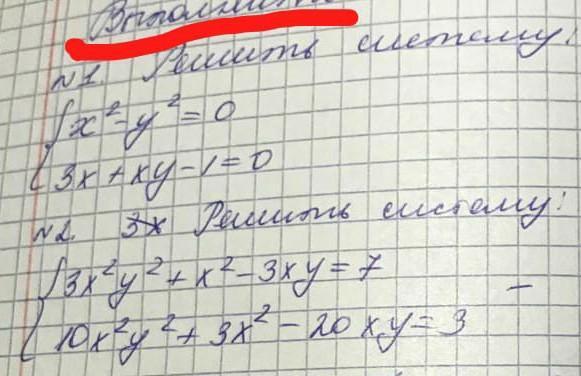 N1. Решить систему:
x² - y² = 0
3x + xy - 1 = 0
N2. 3x Решить систему:
3x²y² + x² - 3xy = 7
10x²y² + 3x² - 20xy = 3